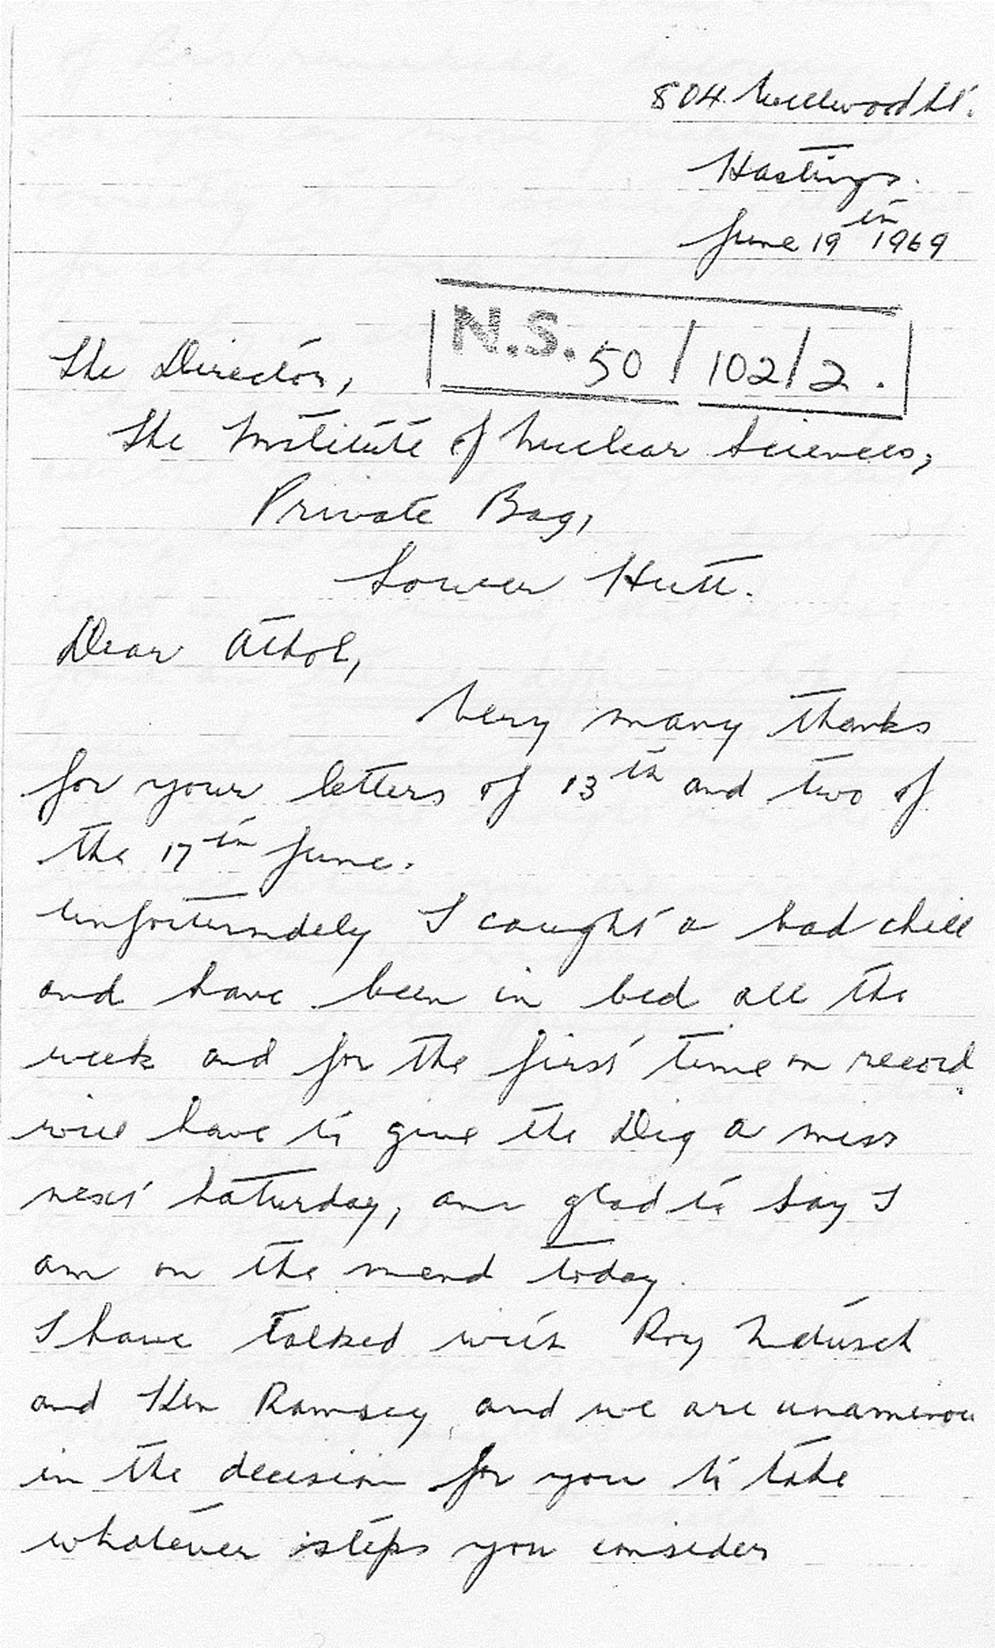 804 Wellwood St.
Hastings.
June 19th 1969
N.S. 50/102/2.
The Director,
The Institute of Nuclear Sciences,
Private Bag,
Lower Hutt.
Dear Athol,
Very many thanks
for your letters of 13th and two of
the 17th June.
Unfortunately I caught a bad chill
and have been in bed all the
week and for the first time on record
will have to give the Dig a miss
next Saturday, am glad to say I
am on the mend today.
I have talked with Roy
and Ken Ramsey, and we are unamimou
in the decision for you to take
whatever steps you consider